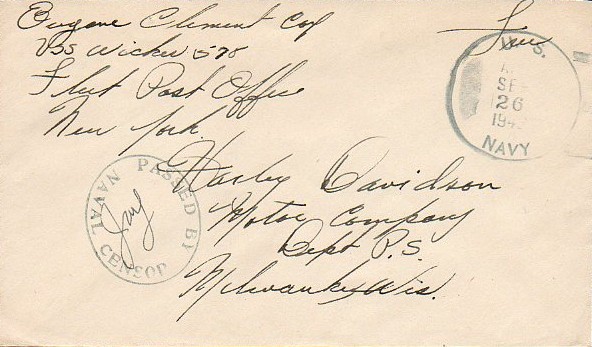 Eugene Clement Cox
USS Wicker 578
Fleet Post Office
New York
Free
U.S.
SE
26
194
NAVY
PASSED BY
NAVAL
CENSOR
Harley Davidson
Motor Company
Dept P.S.
Milwaukee Wis.